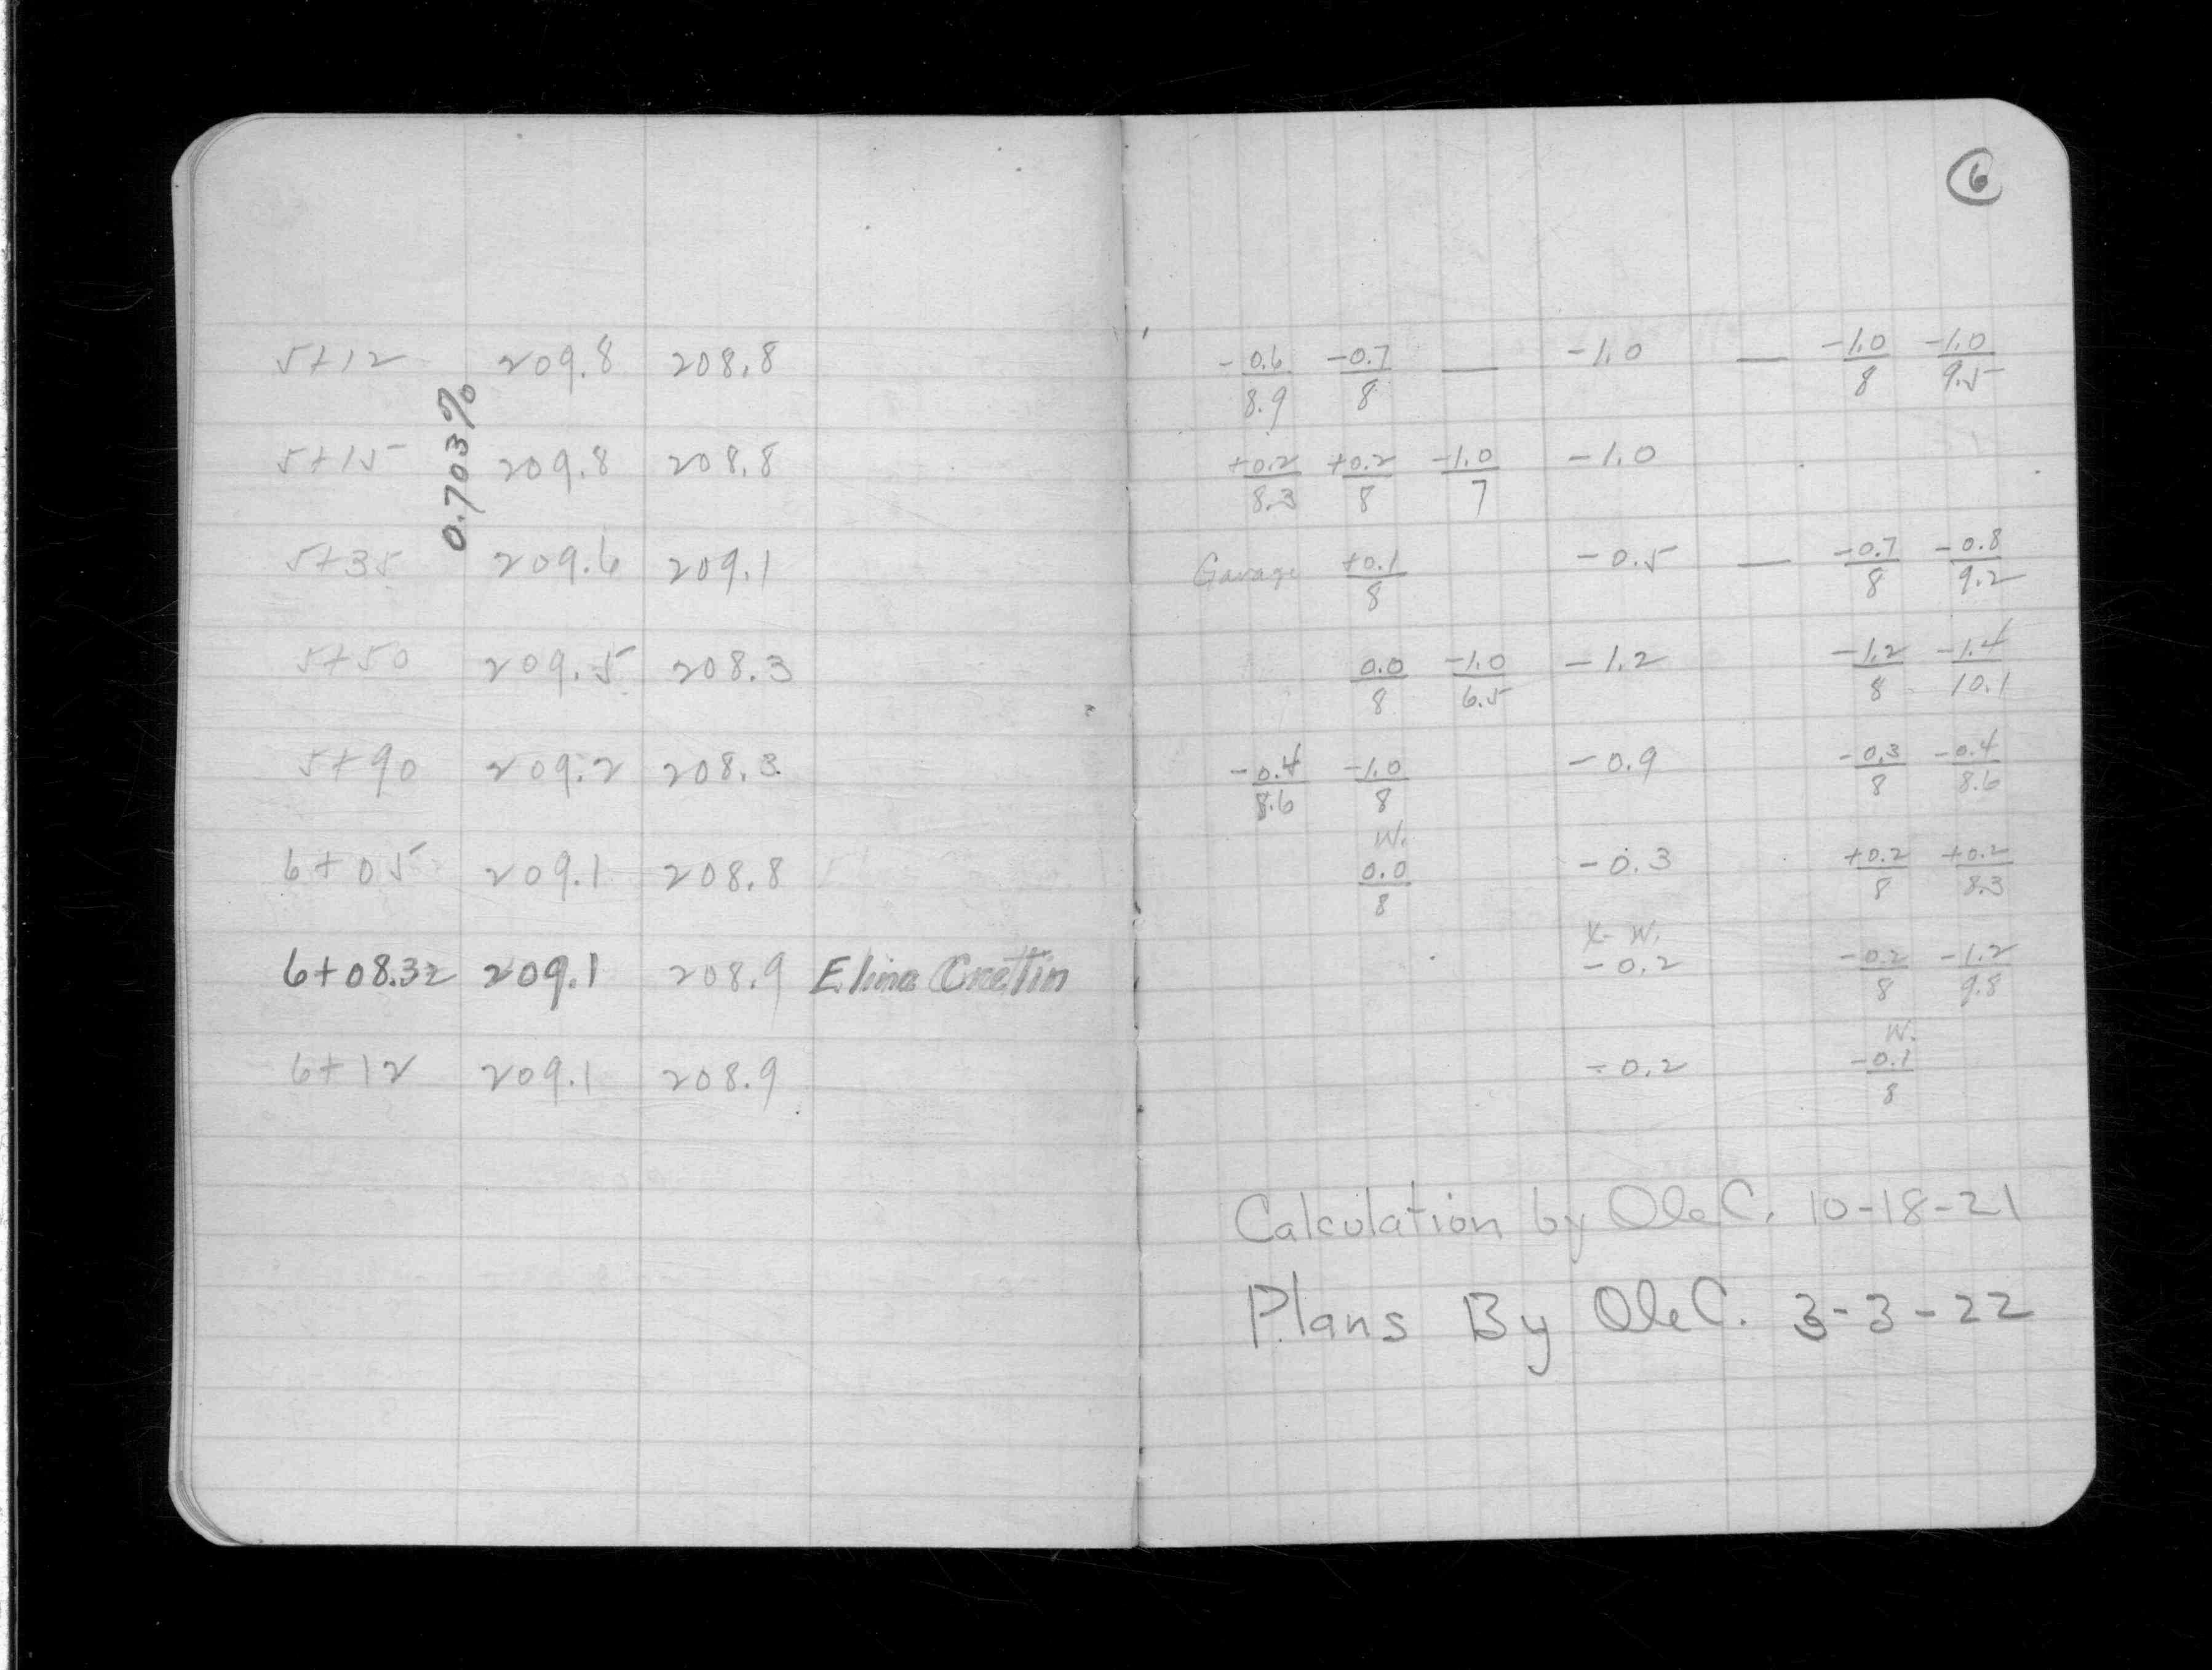 6
0.703%
5+12 209.8 208.8 -0.6/8.9 -0.7/8 — -1.0 — -1.0/8 -1.0/9.5
5+15 209.8 208.8 +0.2/8.3 +0.2/8 -1.0/7 -1.0
5+35 209.6 209.1 Garage +0.1/8 -0.5 — -0.7/8 -0.8/9.2
5+50 209.5 208.3 0.0/8 -1.0/6.5 -1.2 -1.2/8 -1.4/10.1
5+90 209.2 208.3 -0.4/8.6 -1.0/8 -0.9 -0.3/8 -0.4/8.6
W.
6+05 209.1 208.8 0.0/8 -0.3 +0.2/8 +0.2/8.3
X-W.
6+08.32 209.1 208.9 -0.2 -0.2/8 -1.2/9.8
W.
6+12 209.1 208.9 -0.2 -0.1/8
Calculation by Ole C. 10-18-21
Plans By Ole C. 3-3-22